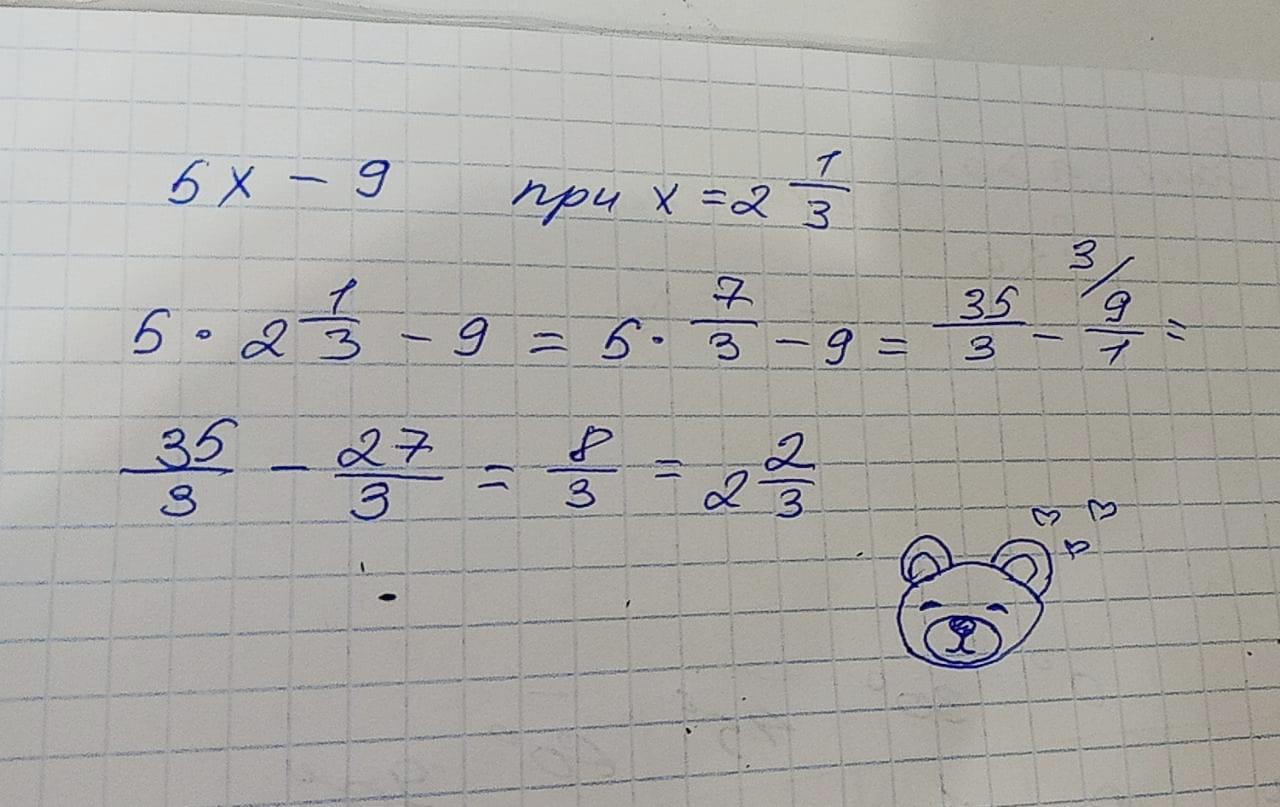 5x - 9 при x = 2 1/3
5 · 2 1/3 - 9 = 5 · 7/3 - 9 = 35/3 - 9/1 3/ =
35/3 - 27/3 = 8/3 = 2 2/3